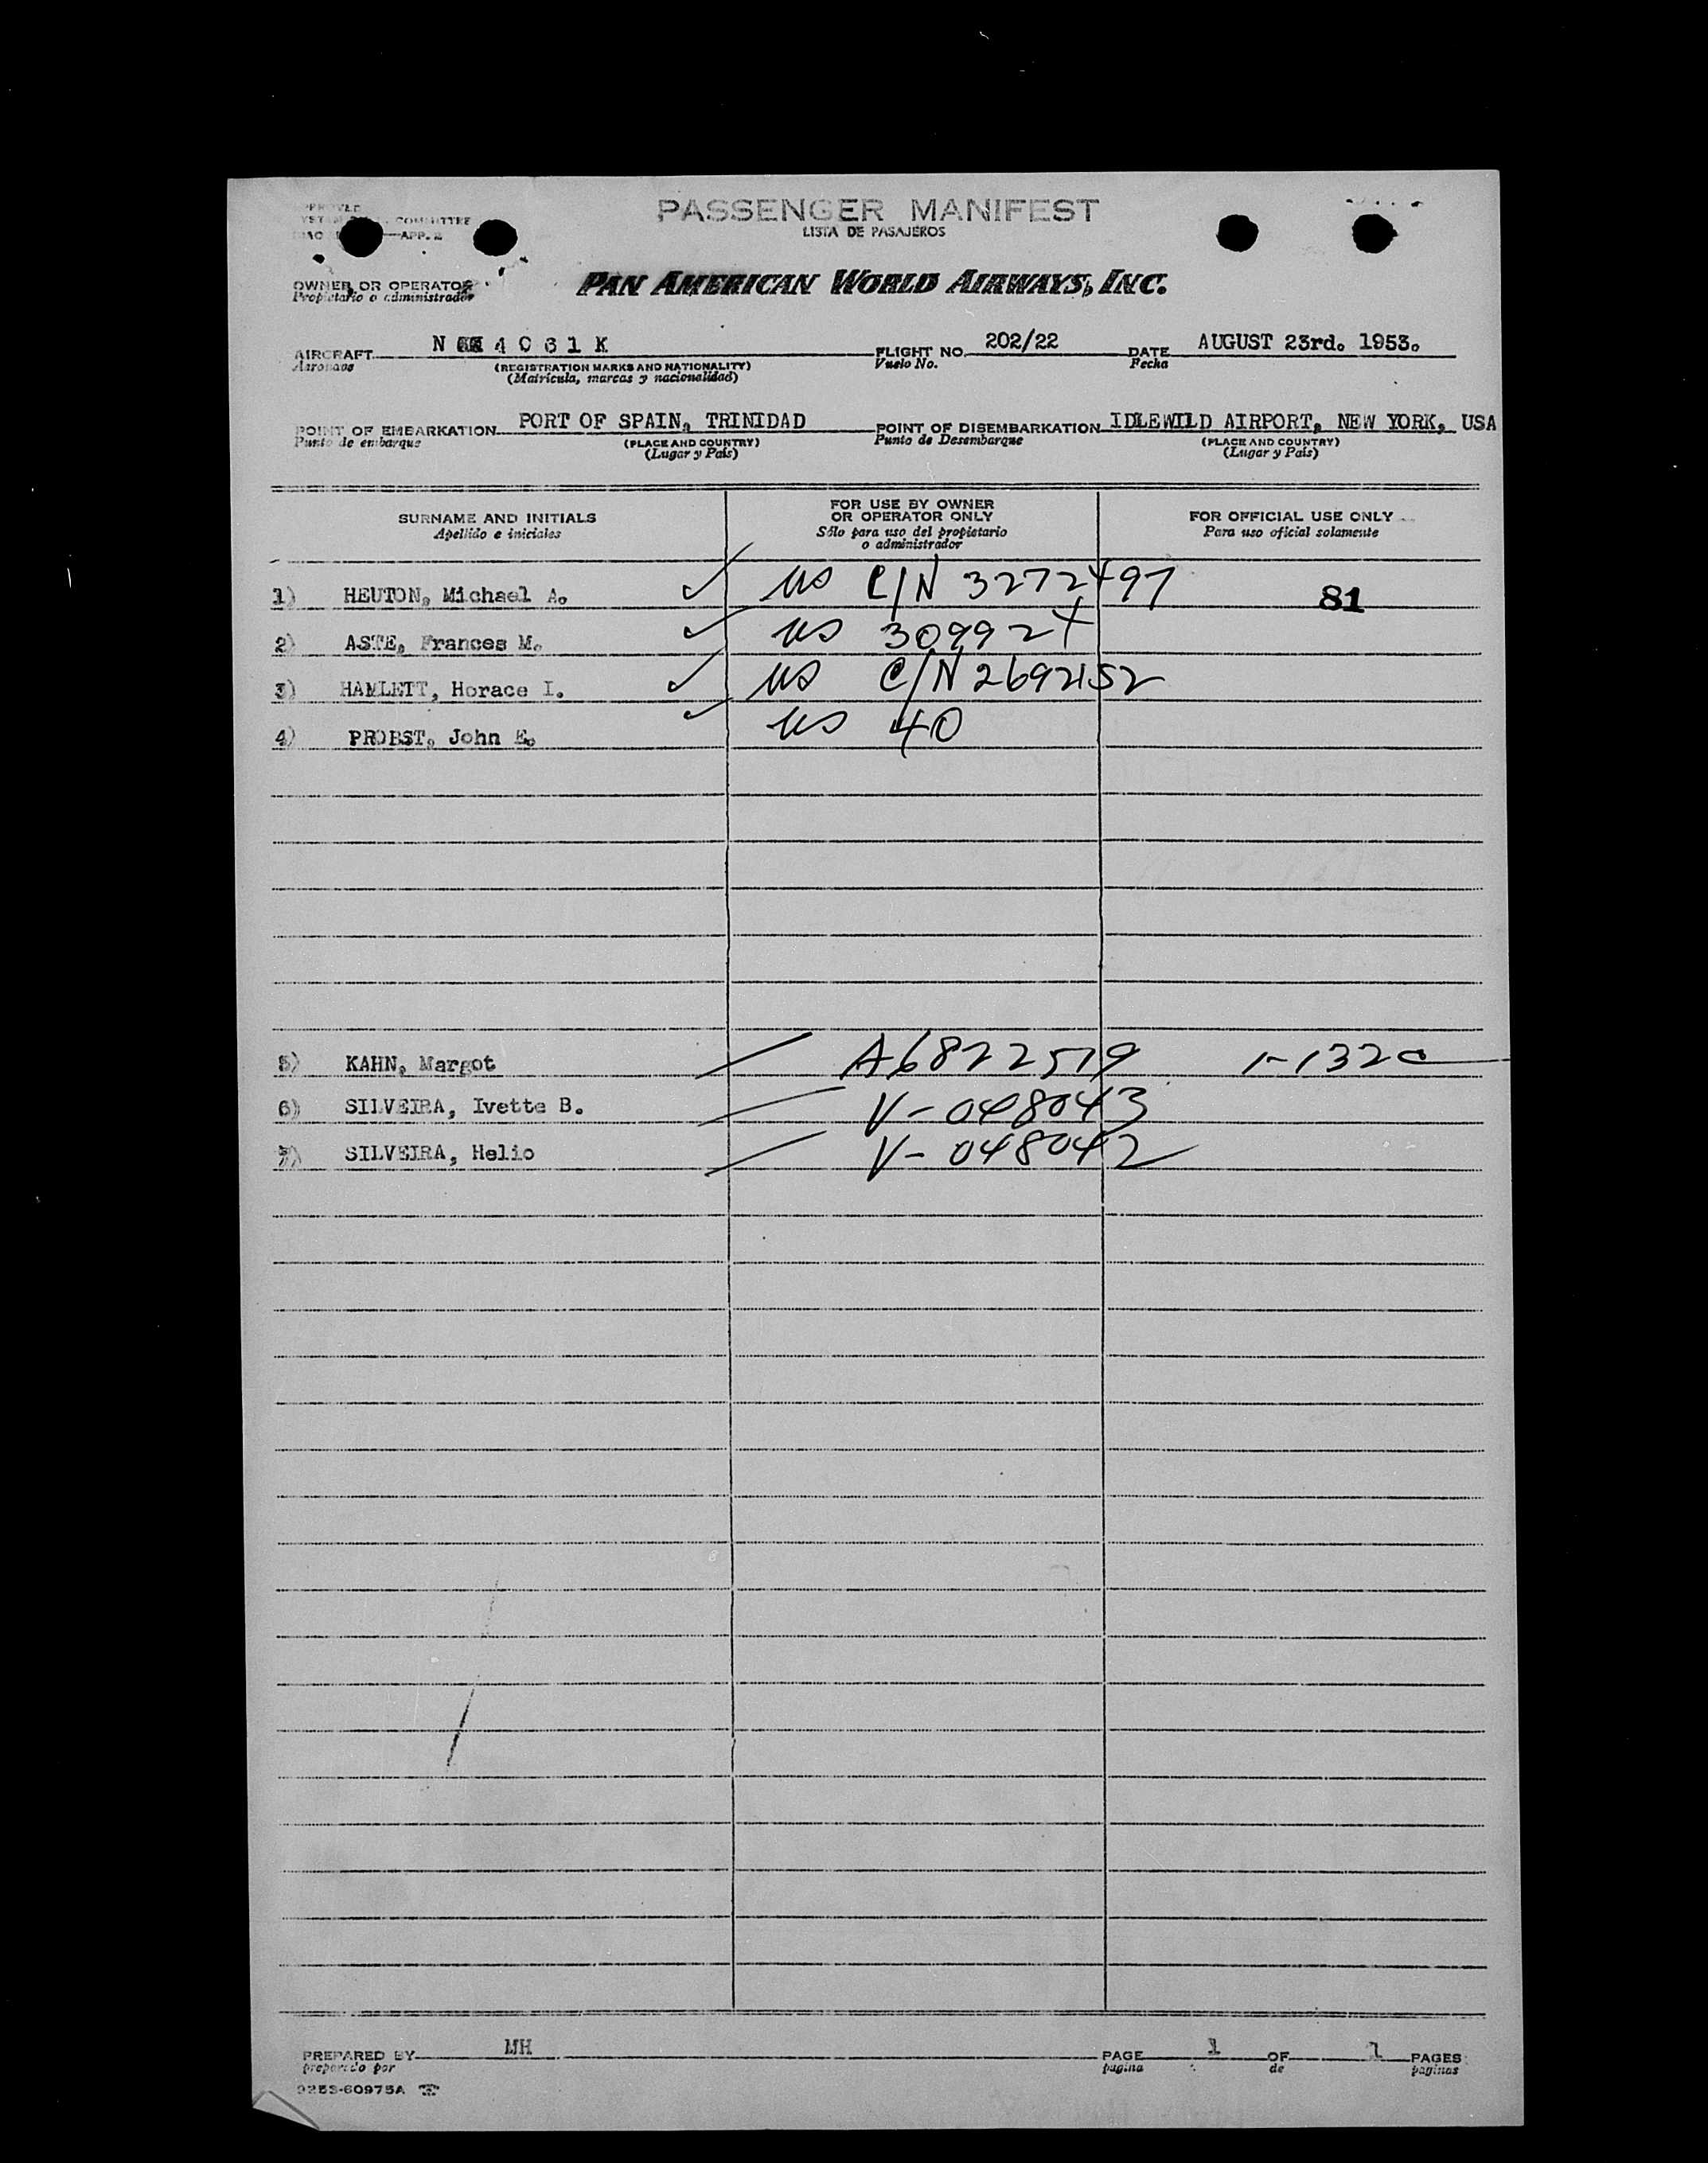 COMMITTEE
APP. 2
PASSENGER MANIFEST
LISTA DE PASAJEROS
OWNER OR OPERATOR
Propietario o administrador
PAN AMERICAN WORLD AIRWAYS, INC.
AIRCRAFT N 4 0 6 1 K FLIGHT NO. 202/22 DATE AUGUST 23rd. 1953.
Aeronave (REGISTRATION MARKS AND NATIONALITY) Vuelo No. Fecha
(Matrícula, marcas y nacionalidad)
POINT OF EMBARKATION PORT OF SPAIN, TRINIDAD POINT OF DISEMBARKATION IDLEWILD AIRPORT, NEW YORK, USA
Punto de embarque (PLACE AND COUNTRY) Punto de Desembarque (PLACE AND COUNTRY)
(Lugar y País) (Lugar y País)
SURNAME AND INITIALS FOR USE BY OWNER OR OPERATOR ONLY FOR OFFICIAL USE ONLY
Apellido e iniciales Sólo para uso del propietario o administrador Para uso oficial solamente
1) HEUTON, Michael A. ✓ US C/N 3272497 81
2) ASTE, Frances M. ✓ US 309924
3) HAMLETT, Horace I. ✓ US C/N 2692152
4) PROBST, John E. ✓ US 40
5) KAHN, Margot A6822519
6) SILVEIRA, Ivette B. V-048043
7) SILVEIRA, Helio V-048042
PREPARED BY MH PAGE 1 OF 1 PAGES
preparado por pagina de paginas
0253-60975A